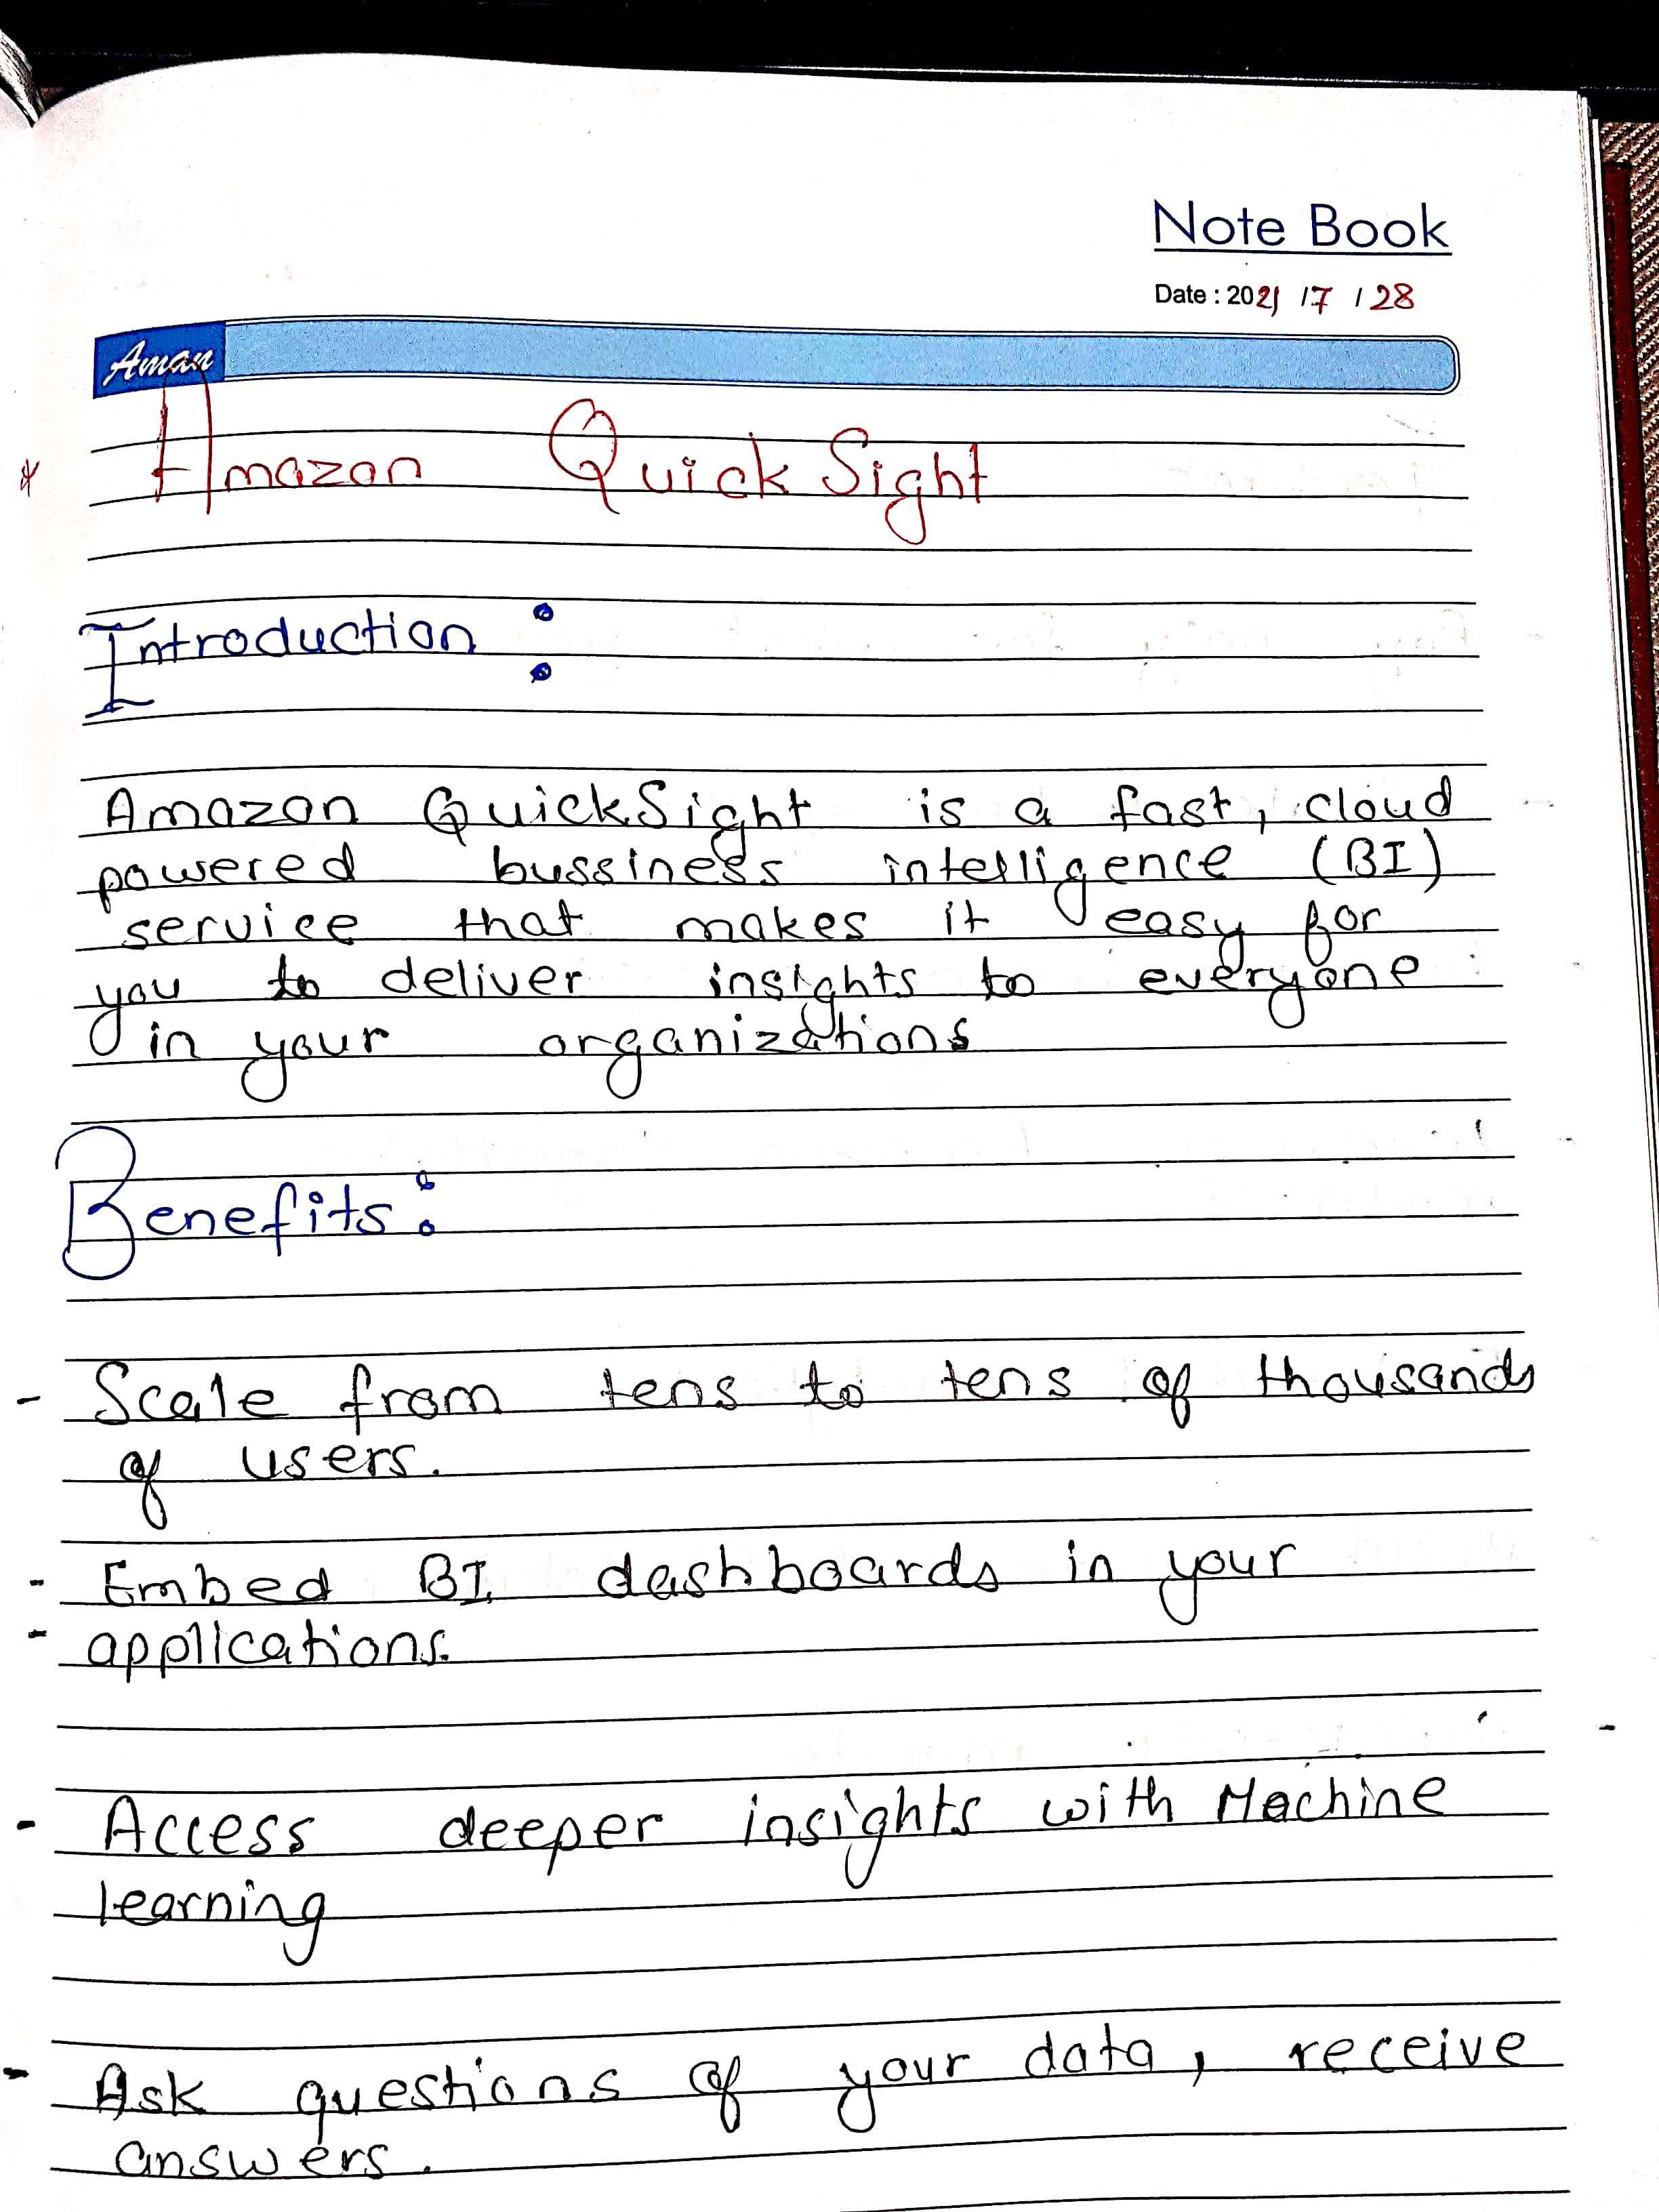 Note Book
Date : 2021 / 7 / 28
Aman
* Amazon QuickSight
Introduction :
Amazon QuickSight is a fast, cloud
powered bussiness intelligence (BI)
service that makes it easy for
you to deliver insights to everyone
in your organizations
Benefits :
- Scale from tens to tens of thousands
of users.
- Embed BI dashboards in your
- applications.
- Access deeper insights with Machine
learning
- Ask questions of your data, receive
answers.